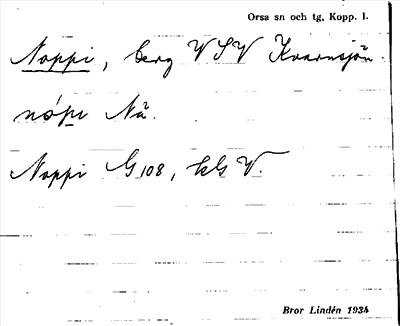 Orsa sn och tg, Kopp. l.
Noppi, berg VSV Kvarnsjön.
nópe Nä.
Noppi G 108, kG V.
Bror Lindén 1934